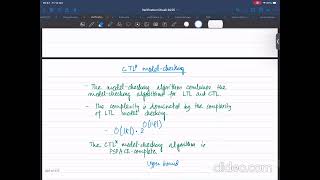 CTL* model-checking
- The model-checking algorithm combines the
model-checking algorithms for LTL and CTL.
- The complexity is dominated by the complexity
of LTL model checking.
- O(|K|) . 2^O(|φ|)
The CTL* model-checking algorithm is
PSPACE-complete.
Upper bound
clideo.com